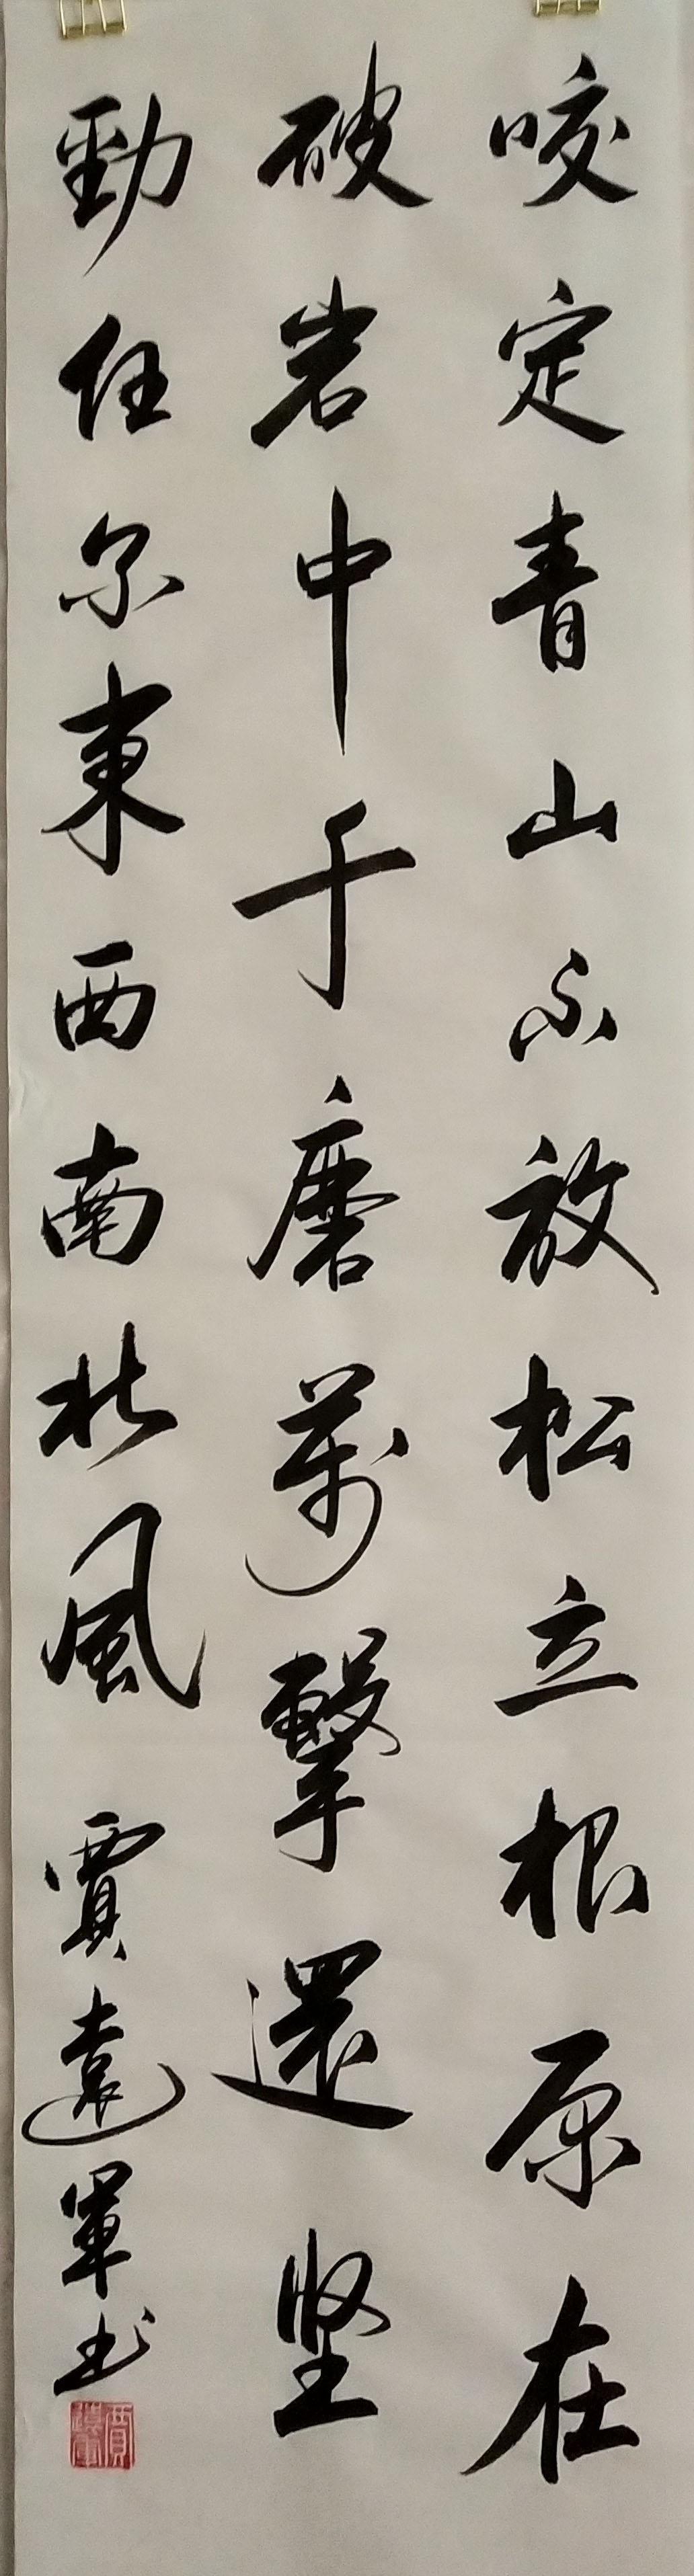 咬定青山不放松立根原在
破岩中千磨萬擊還坚
勁任尔東西南北風 賈遠軍书
賈遠軍